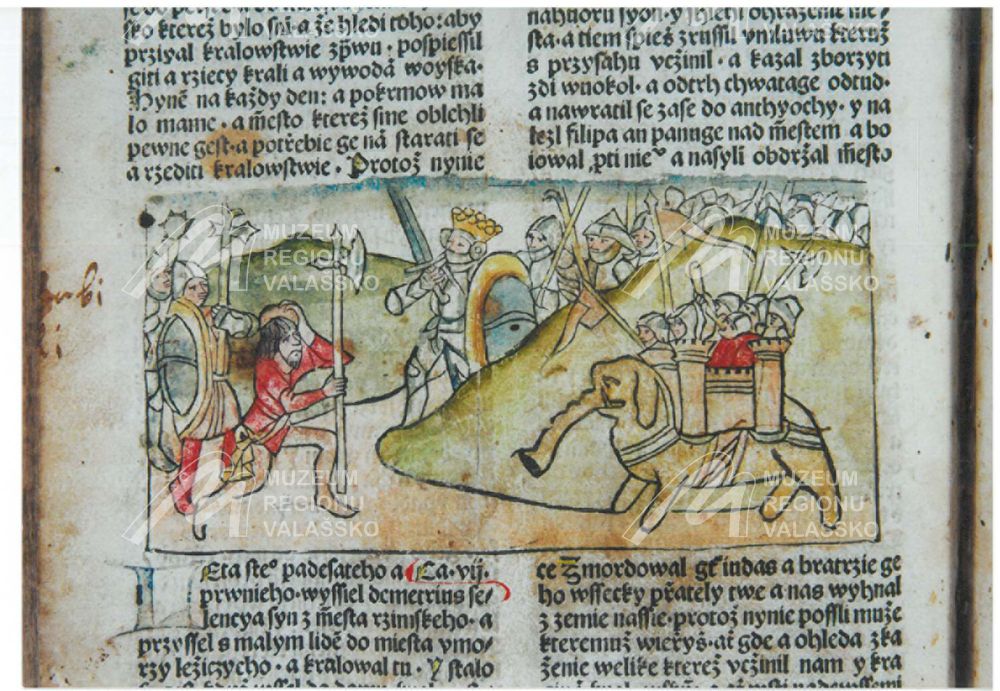 sko kterež bylo a že hledi toho: aby
przyial kralowstwie · pospiessil
giti a rziecy krali a wywodã woyska·
Hynē na každy den: a pokrmow ma
lo mame · a mẽsto kterež sme oblehli
pewne gest·a potřebie ge nã starati se
a rzediti kralowstwie · Protož nynie
nahuoru syon·y ohraženie mie/
sta·a tiem spieš zrussil vmluwu kteruž
s przysahu vczinil · a kazal zborzyti
zdi wuokol · a odtrh chwatage odtud·
a nawratil se zase do anthyochy · y na
lezl filipa an panuge nad mẽstem a bo
iowal a nasyli obdržal mẽsto
MUZEUM
REGIONU
VALAŠSKO
MUZEUM
REGIONU
VALAŠSKO
MUZEUM
REGIONU
VALAŠSKO
MUZEUM
REGIONU
VALAŠSKO
Leta padesateho a Ca·vij·
prwnieho·wyssiel demetrius se/
lencya syn z mẽsta rzimskeho·a
przyssel s malym lidẽ do miesta vmo/
rzy ležiczyho·a kralowal tu·Y stalo
ce Zmordowal indas a bratrzie ge
ho wssecky přately twe a nas wyhnal
z zemie nassie·protož nynie possli muže
kteremuž wieřyš·ať gde a ohleda zka
ženie welike kterež vczinil nam y kra